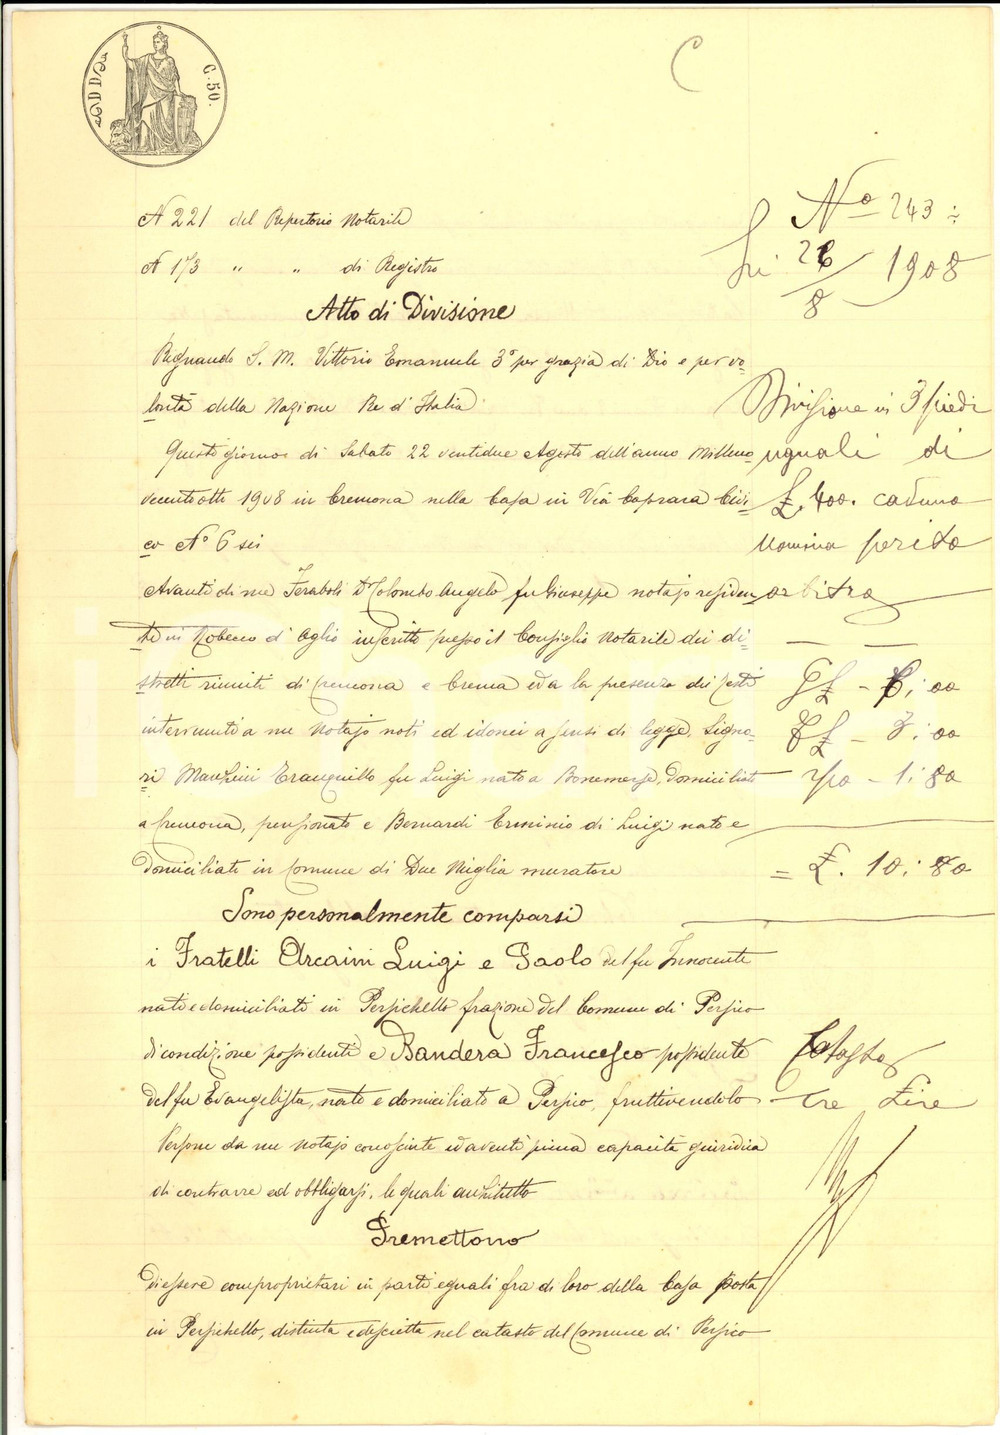 C. 50.
C
N 221 del Repertorio Notarile
N 173 " " di Registro
Atto di Divisione
Regnando S. M. Vittorio Emanuele 3° per grazia di Dio e per vo-
lontà della Nazione Re d'Italia
Questo giorno di Sabato 22 ventidue Agosto dell'anno Milleno
vecentotto 1908 in Cremona nella Casa in Via Caprara Civi-
co N° 6 sei
Avanti di me Feraboli Dr Colombo Angelo fu Giuseppe notajo residen
te in Robecco d'Oglio inscritto presso il Consiglio Notarile dei di-
stretti riuniti di Cremona e Crema ed a la presenza dei testi
intervenuti a me Notajo noti ed idonei a sensi di legge, Signo-
ri Manzini Tranquillo fu Luigi nato a Bonemerse, domiciliato
a Cremona, pensionato e Bernardi Erminio di Luigi nato e
domiciliato in Comune di Due Miglia muratore
Sono personalmente comparsi
i Fratelli Arcaini Luigi e Paolo del fu Innocente
nati e domiciliati in Persichello frazione del Comune di Persico
di condizione possidenti e Bandera Francesco possidente
del fu Evangelista, nato e domiciliato a Persico, fruttivendolo
Persone da me Notajo conosciute ed aventi piena capacità giuridica
di contrarre ed obbligarsi, le quali
Premettono
di essere comproprietari in parti eguali fra di loro della Casa posta
in Persichello, distinta e descritta nel catasto del Comune di Persico
N° 243
26/8 1908
Divisione in 3 piedi
uguali di
£. 400. caduno
Nomina perito
arbitro
3. 00
1. 80
= £. 10. 80
tre Lire